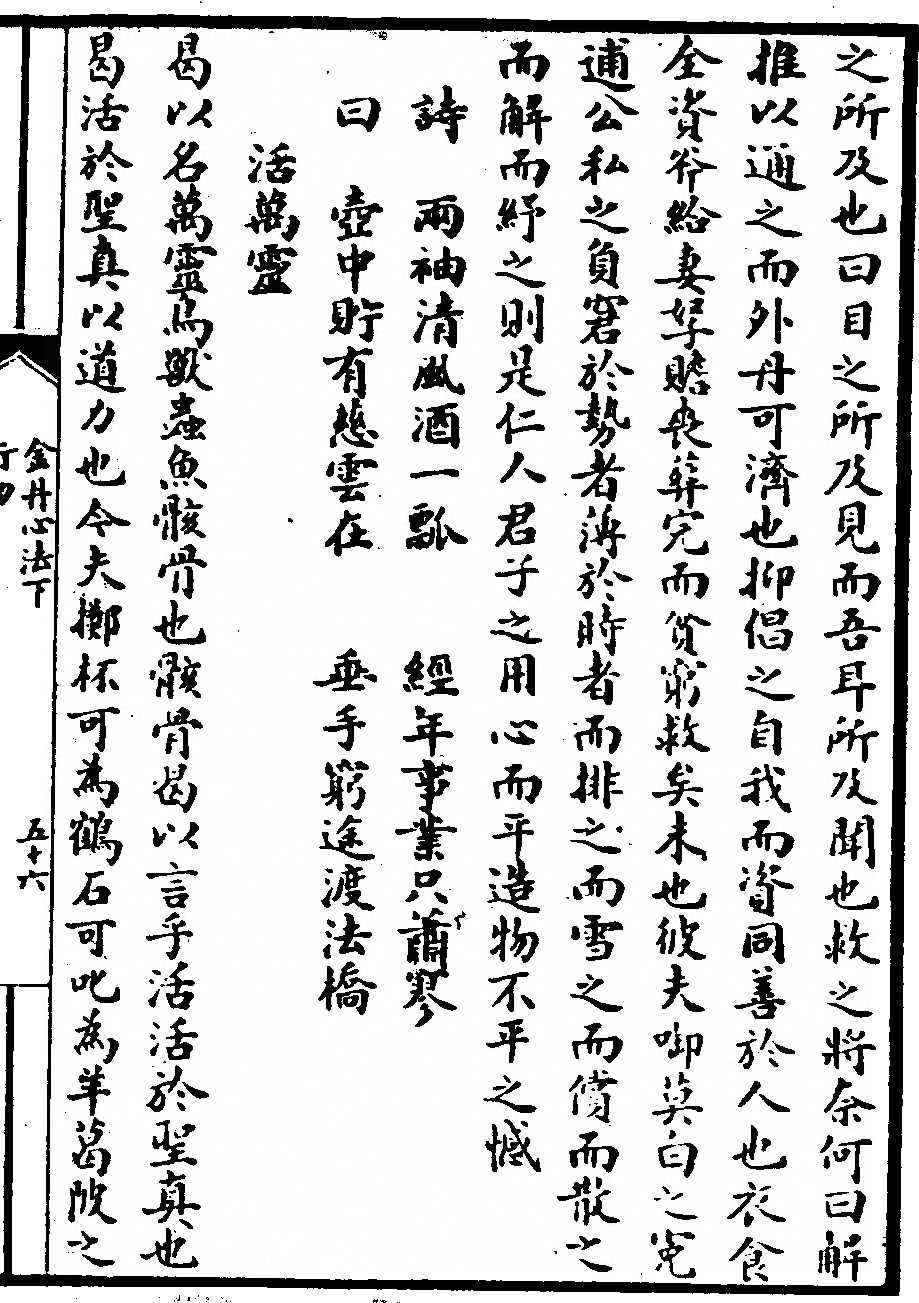 之所及也曰目之所及見而吾耳所及聞也救之將奈何曰解
推以通之而外丹可濟也抑倡之自我而資同善於人也衣食
全資斧給妻孥贍喪葬完而貧窮救矣未也彼夫啣莫白之冤
逋公私之負窘於勢者薄於時者而排之而雪之而償而散之
而解而紓之則是仁人君子之用心而平造物不平之憾
詩　兩袖清風酒一瓢　經年事業只蕭寥
曰　壺中貯有慈雲在　垂手窮途渡法橋
活萬靈
曷以名萬靈鳥獸蟲魚骸骨也骸骨曷以言乎活活於聖真也
曷活於聖真以道力也今夫擲杯可為鶴石可叱為羊葛陂之
金丹心法下
五十六